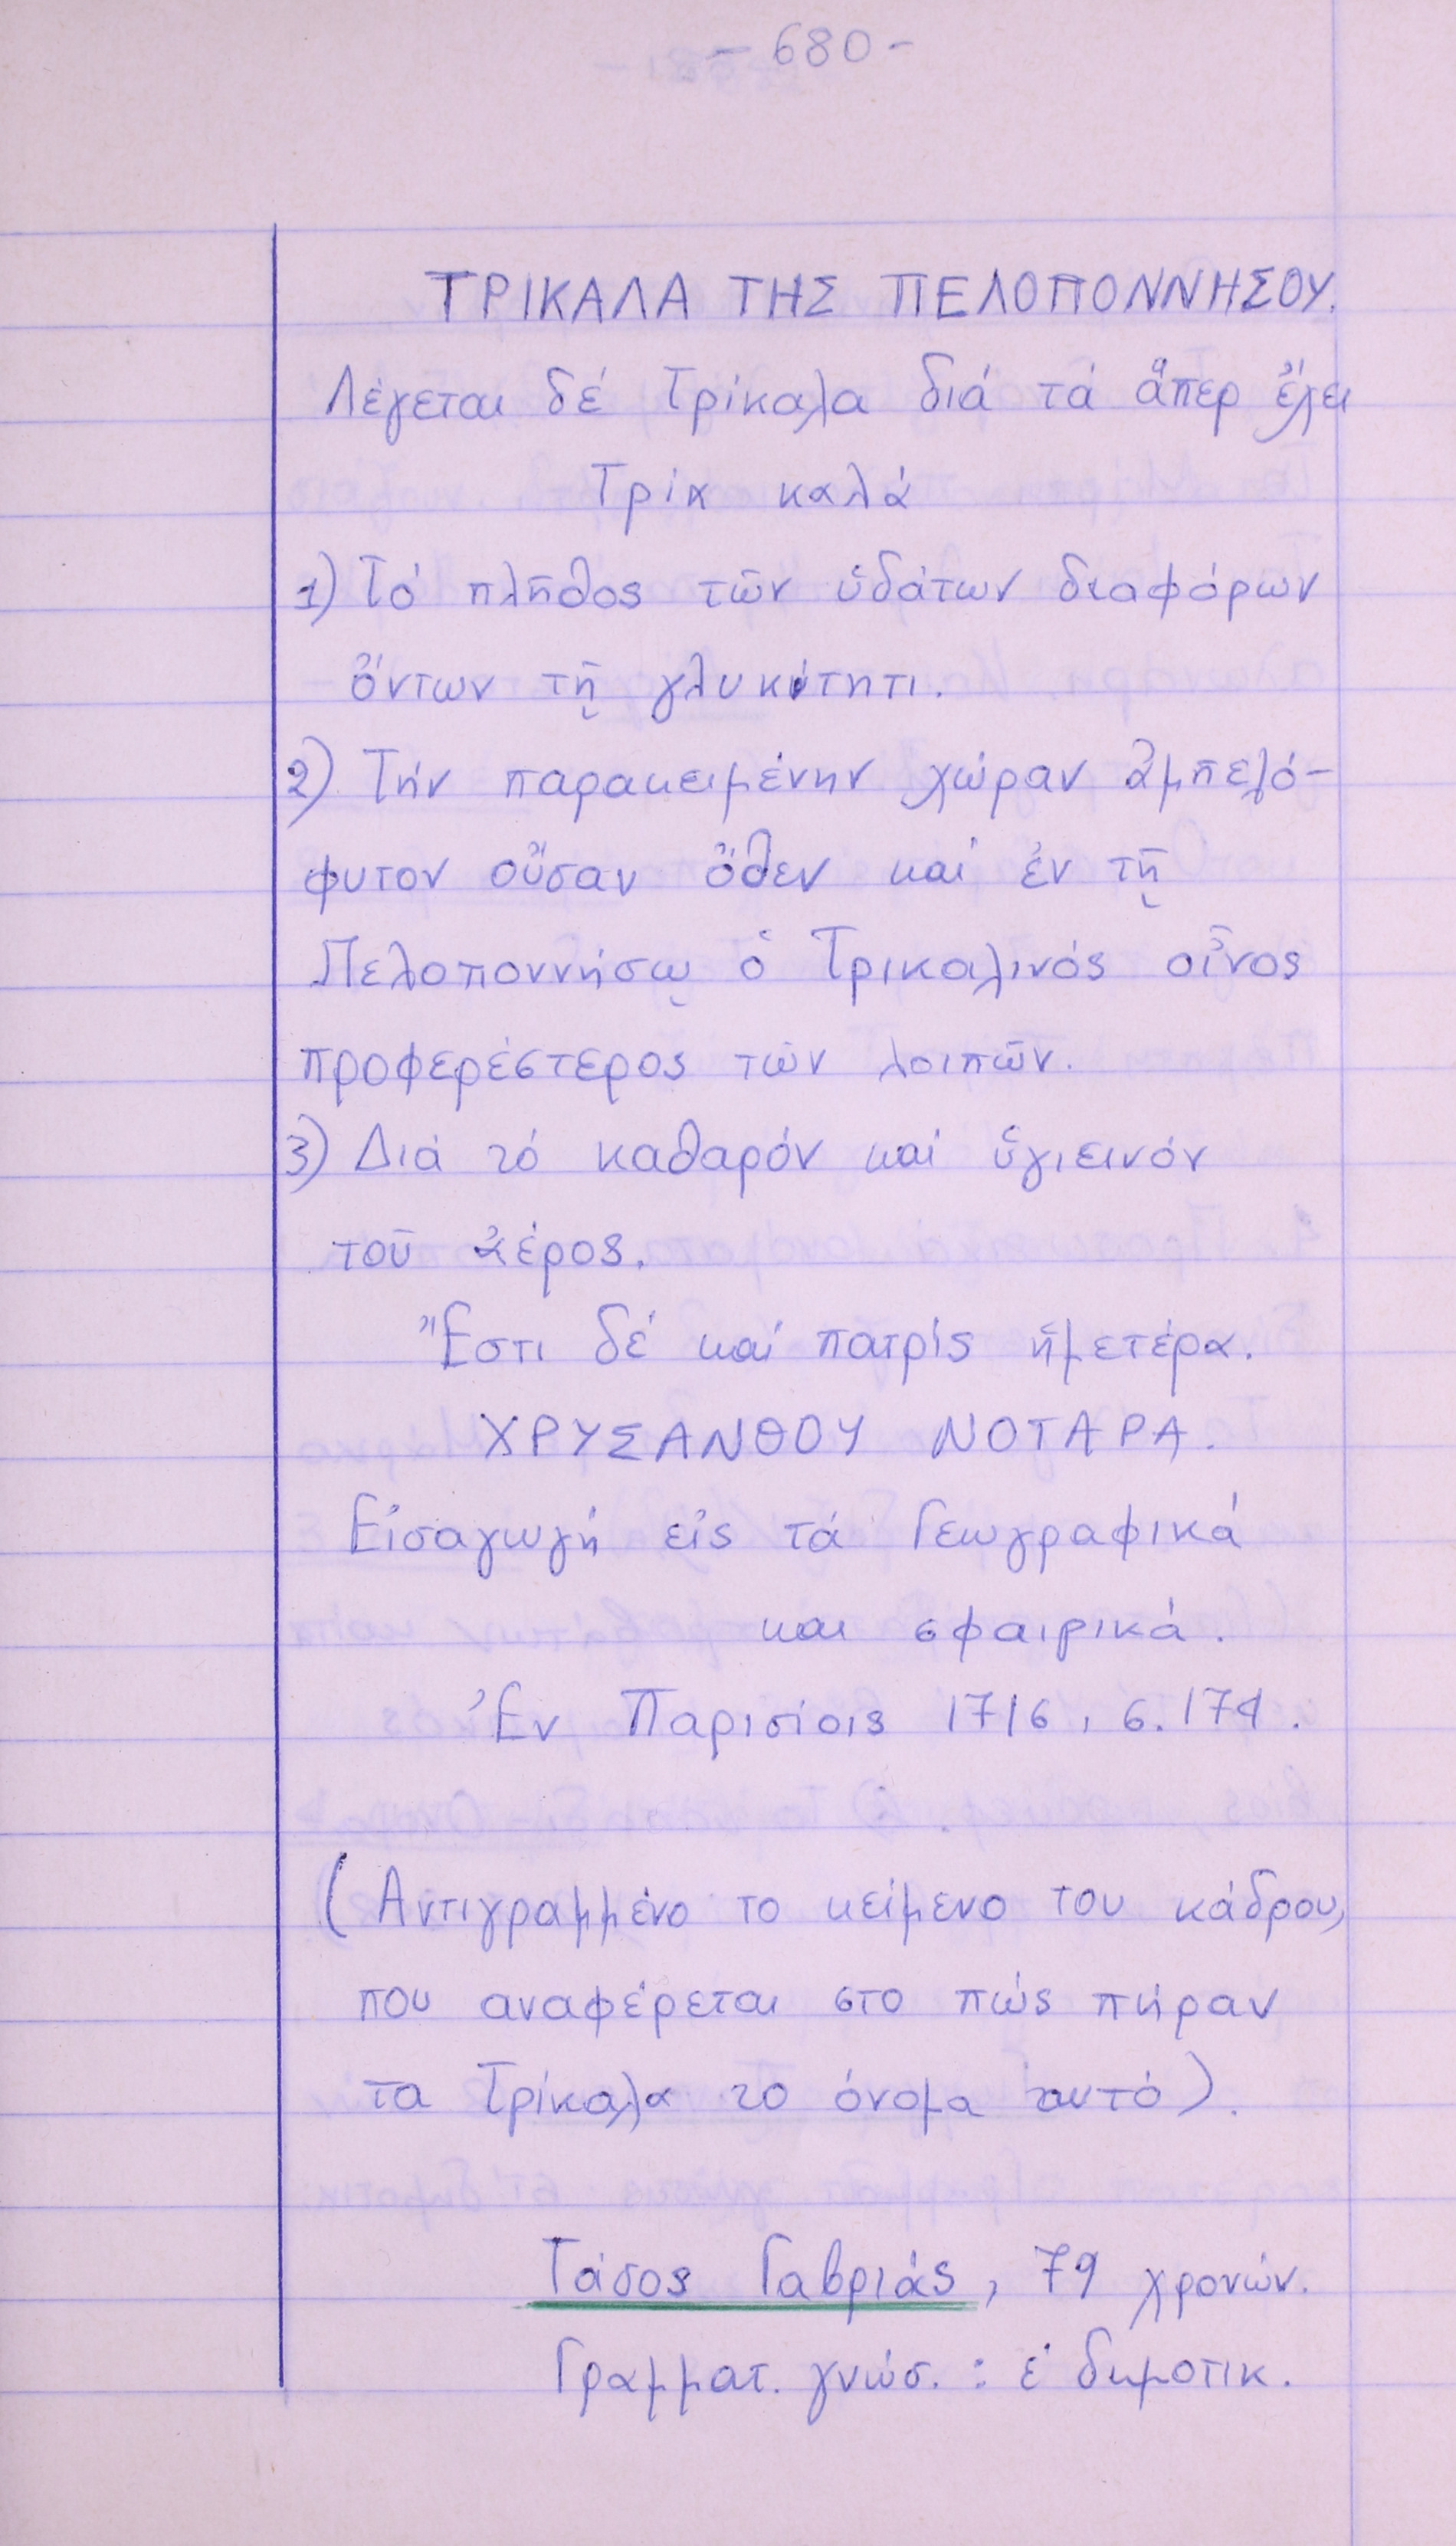 - 680 -
ΤΡΙΚΑΛΑ ΤΗΣ ΠΕΛΟΠΟΝΝΗΣΟΥ.
Λέγεται δέ Τρίκαλα διά τά ἅπερ ἔχει
Τρία καλά
1) Τό πλῆθος τῶν ὑδάτων διαφόρων
ὄντων τῇ γλυκύτητι.
2) Τήν παρακειμένην χώραν ἀμπελό-
φυτον οὖσαν ὅθεν καί ἐν τῇ
Πελοποννήσῳ ὁ Τρικαλινός οἶνος
προφερέστερος τῶν λοιπῶν.
3) Διά τό καθαρόν καί ὑγιεινόν
τοῦ ἀέρος.
Ἔστι δέ καί πατρίς ἡμετέρα.
ΧΡΥΣΑΝΘΟΥ ΝΟΤΑΡΑ.
Εἰσαγωγή εἰς τά Γεωγραφικά
και σφαιρικά.
Ἐν Παρισίοις 1716, σ. 174.
(Αντιγραμμένο το κείμενο του κάδρου,
που αναφέρεται στο πώς πήραν
τα Τρίκαλα το όνομα αυτό).
Τάσος Γαβριάς, 79 χρονών.
Γραμματ. γνώσ. : έ δημοτικ.